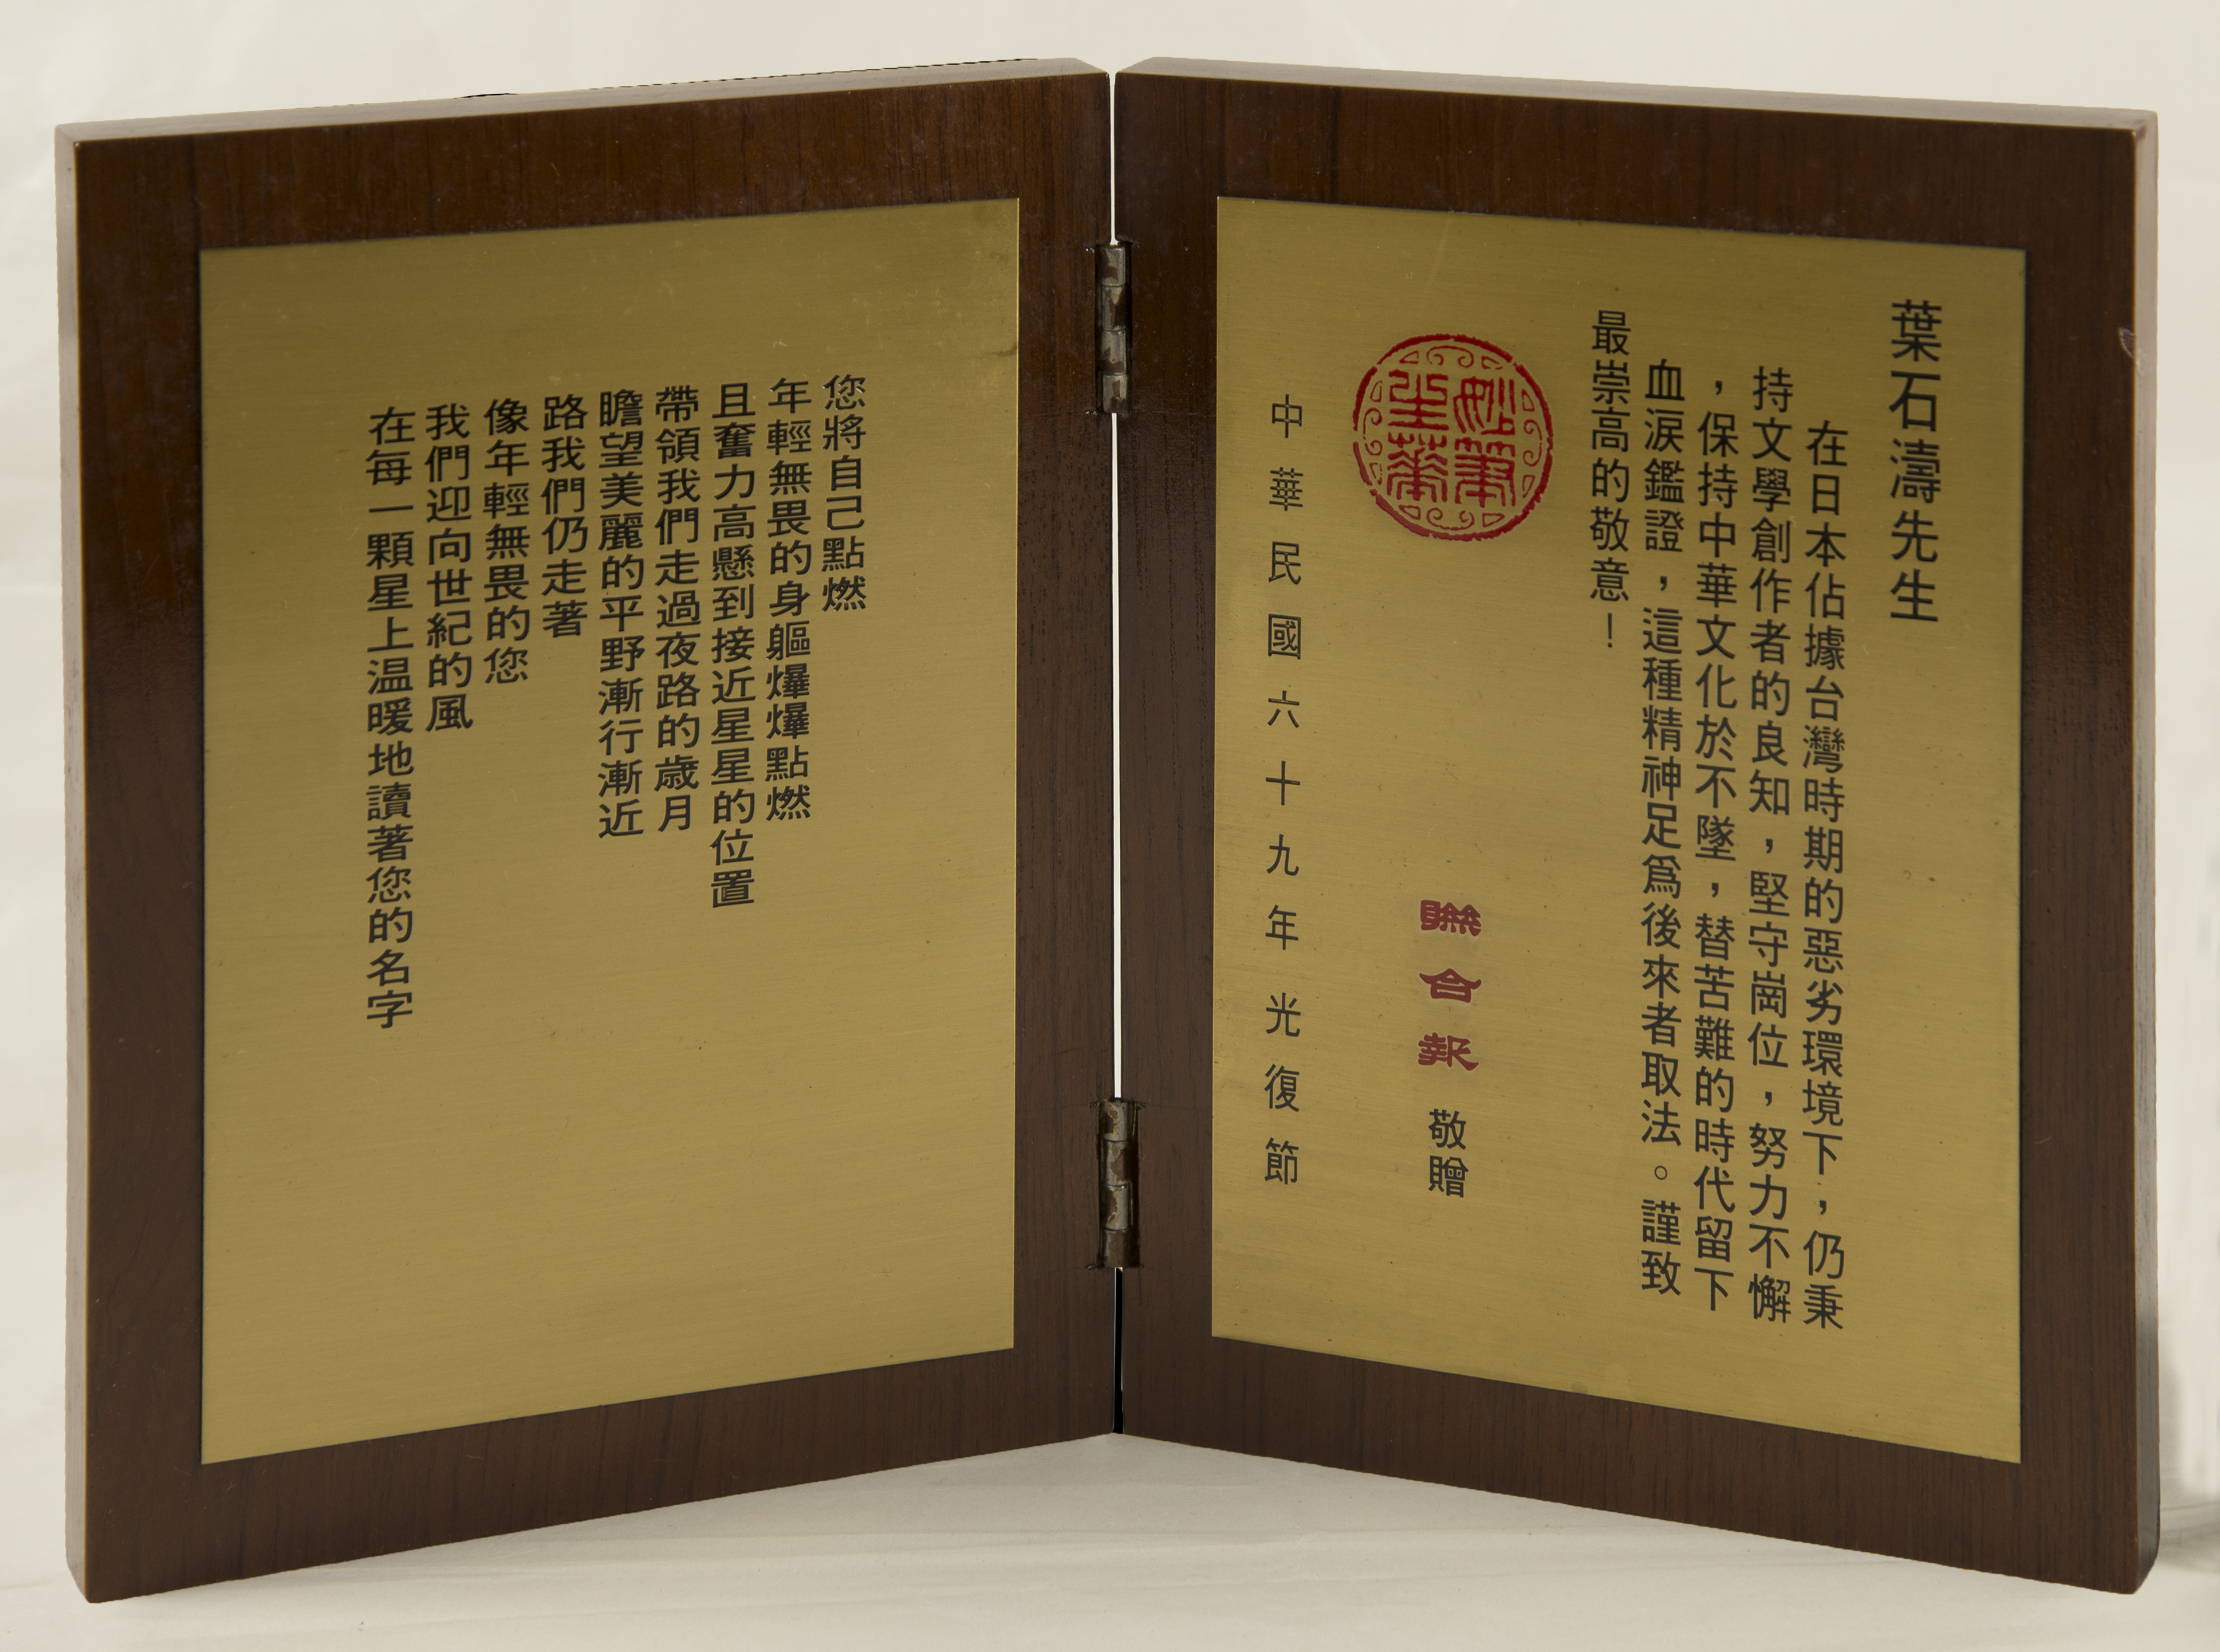 葉石濤先生
在日本佔據台灣時期的惡劣環境下，仍秉
持文學創作者的良知，堅守崗位，努力不懈
，保持中華文化於不墜，替苦難的時代留下
血淚鑑證，這種精神足爲後來者取法。謹致
最崇高的敬意！
妙筆
生華
聯合報敬贈
中華民國六十九年光復節
您將自己點燃
年輕無畏的身軀爆爆點燃
且奮力高懸到接近星星的位置
帶領我們走過夜路的歲月
瞻望美麗的平野漸行漸近
路我們仍走著
像年輕無畏的您
我們迎向世紀的風
在每一顆星上温暖地讀著您的名字